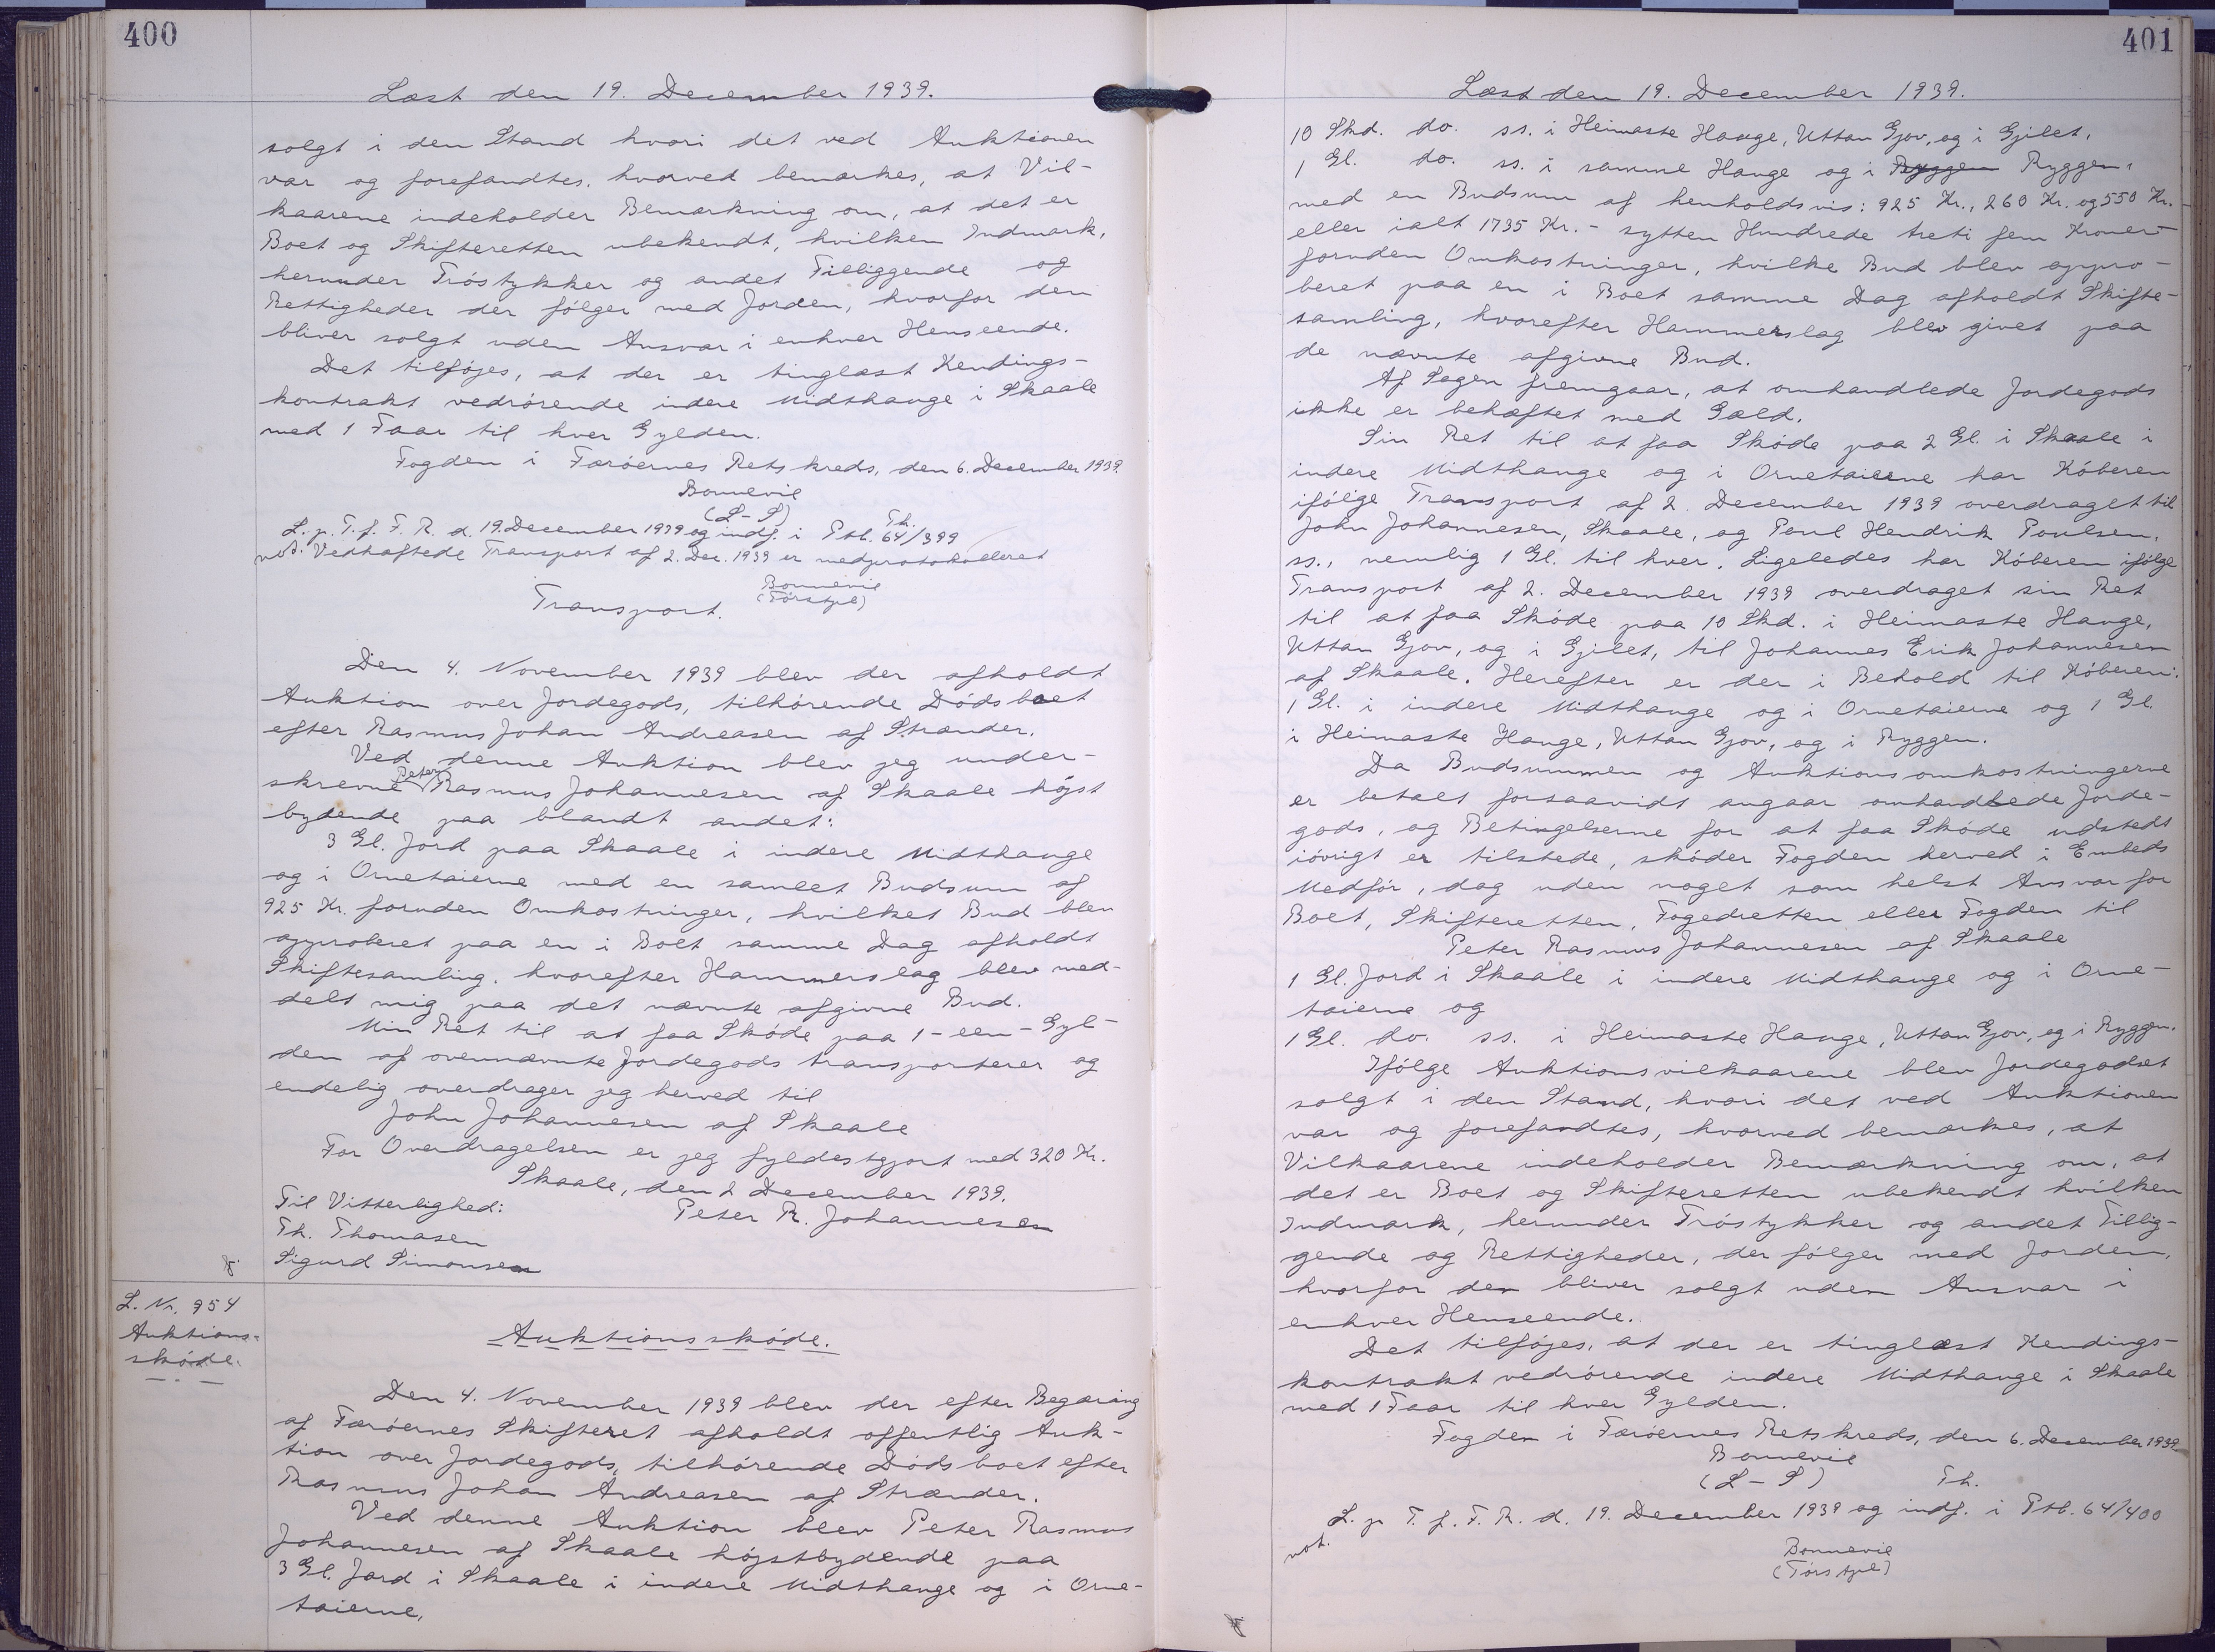 400
Læst den 19. December 1939.
solgt i den Stand hvori det ved Auktionen
var og forefandtes, hvorved bemærkes, at Vil-
kaarene indeholder Bemærkning om, at det er
Boet og Skifteretten ubekendt, hvilken Indmark,
herunder Tróstykker og andet Tilliggende og
Rettigheder der fólger med Jorden, hvorfor den
bliver solgt uden Ansvar i enhver Henseende.
Det tilfójes, at der er tinglæst Kendings-
kontrakt vedrórende indere Midthauge i Skaale
med 1 Faar til hver Gylden.
Fogden i Færóernes Retskreds, den 6. December 1939.
Bonnevie
(L-S)
Th.
L. p. T. f. F. R. d. 19. December 1939 og indf. i Ptb. 64/399
not. Vedhæftede Transport af 2. Dec. 1939 er medprotokolleret
Bonnevie
(Tórstpl)
Transport.
Den 4. November 1939 blev der afholdt
Auktion over Jordegods, tilhórende Dódsboet
efter Rasmus Johan Andreasen af Strænder.
Ved denne Auktion blev jeg under-
skrevne Peter Rasmus Johannesen af Skaale hójst
bydende paa blandt andet:
3 Gl. Jord paa Skaale i indere Midthauge
og i Ornetaierne med en samlet Budsum af
925 Kr. foruden Omkostninger, hvilket Bud blev
approberet paa en i Boet samme Dag afholdt
Skiftesamling, hvorefter Hammerslag blev med-
delt mig paa det nævnte afgivne Bud.
Min Ret til at faa Skóde paa 1 - een - Gyl-
den af ovennævnte Jordegods transporterer og
endelig overdrager jeg herved til
John Johannesen af Skaale
For Overdragelsen er jeg fyldestgjort med 320 Kr.
Skaale, den 2 December 1939.
Til Vitterlighed:
Peter R. Johannesen
Th. Thomasen
Sigurd Simonsen
L. Nr. 954
Auktions-
skóde.
Auktionsskóde.
Den 4. November 1939 blev der efter Begæring
af Færóernes Skifteret afholdt offentlig Auk-
tion over Jordegods, tilhórende Dódsboet efter
Rasmus Johan Andreasen af Strænder.
Ved denne Auktion blev Peter Rasmus
Johannesen af Skaale hójstbydende paa
3 Gl. Jord i Skaale i indere Midthauge og i Orne-
taierne,
401
Læst den 19. December 1939.
10 Skd. do. ss. i Heimaste Hauge, Uttan Gjov, og i Gjilet,
1 Gl. do. ss. i samme Hauge og i Ryggen Ryggen,
med en Budsum af henholdsvis: 925 Kr., 260 Kr. og 550 Kr. -
eller ialt 1735 Kr. - sytten Hundrede treti fem Kroner -
foruden Omkostninger, hvilke Bud blev appro-
beret paa en i Boet samme Dag afholdt Skifte-
samling, hvorefter Hammerslag blev givet paa
de nævnte afgivne Bud.
Af Sagen fremgaar, at omhandlede Jordegods
ikke er behæftet med Gæld.
Sin Ret til at faa Skóde paa 2 Gl. i Skaale i
indere Midthauge og i Ornetaierne har Kóberen
ifólge Transport af 2. December 1939 overdraget til
John Johannesen, Skaale, og Poul Hendrik Poulsen,
ss., nemlig 1 Gl. til hver. Ligeledes har Kóberen ifólge
Transport af 2. December 1939 overdraget sin Ret
til at faa Skóde paa 10 Skd. i Heimaste Hauge,
Uttan Gjov, og i Gjilet, til Johannes Erik Johannesen
af Skaale. Herefter er der i Behold til Kóberen:
1 Gl. i indere Midthauge og i Ornetaierne og 1 Gl.
i Heimaste Hauge, Uttan Gjov, og i Ryggen.
Da Budsummen og Auktionsomkostningerne
er betalt forsaavidt angaar omhandlede Jorde-
gods, og Betingelserne for at faa Skóde udstedt
ióvrigt er tilstede, skóder Fogden herved i Embeds
Medfór, dog uden noget som helst Ansvar for
Boet, Skifteretten, Fogedretten eller Fogden til
Peter Rasmus Johannesen af Skaale
1 Gl. Jord i Skaale i indere Midthauge og i Orne-
taierne og
1 Gl. do. ss. i Heimaste Hauge, Uttan Gjov, og i Ryggen.
Ifólge Auktionsvilkaarene blev Jordegodset
solgt i den Stand, hvori det ved Auktionen
var og forefandtes, hvorved bemærkes, at
Vilkaarene indeholder Bemærkning om, at
det er Boet og Skifteretten ubekendt hvilken
Indmark, herunder Tróstykker og andet Tillig-
gende og Rettigheder, der fólger med Jorden,
hvorfor den bliver solgt uden Ansvar i
enhver Henseende.
Det tilfójes, at der er tinglæst Kendings-
kontrakt vedrórende indere Midthauge i Skaale
med 1 Faar til hver Gylden.
Fogden i Færóernes Retskreds, den 6. December 1939
Bonnevie
(L-S)
Th.
L. p T. f. F. R. d. 19. December 1939 og indf. i Ptb. 64/400
not.
Bonnevie
(Tórstpl)